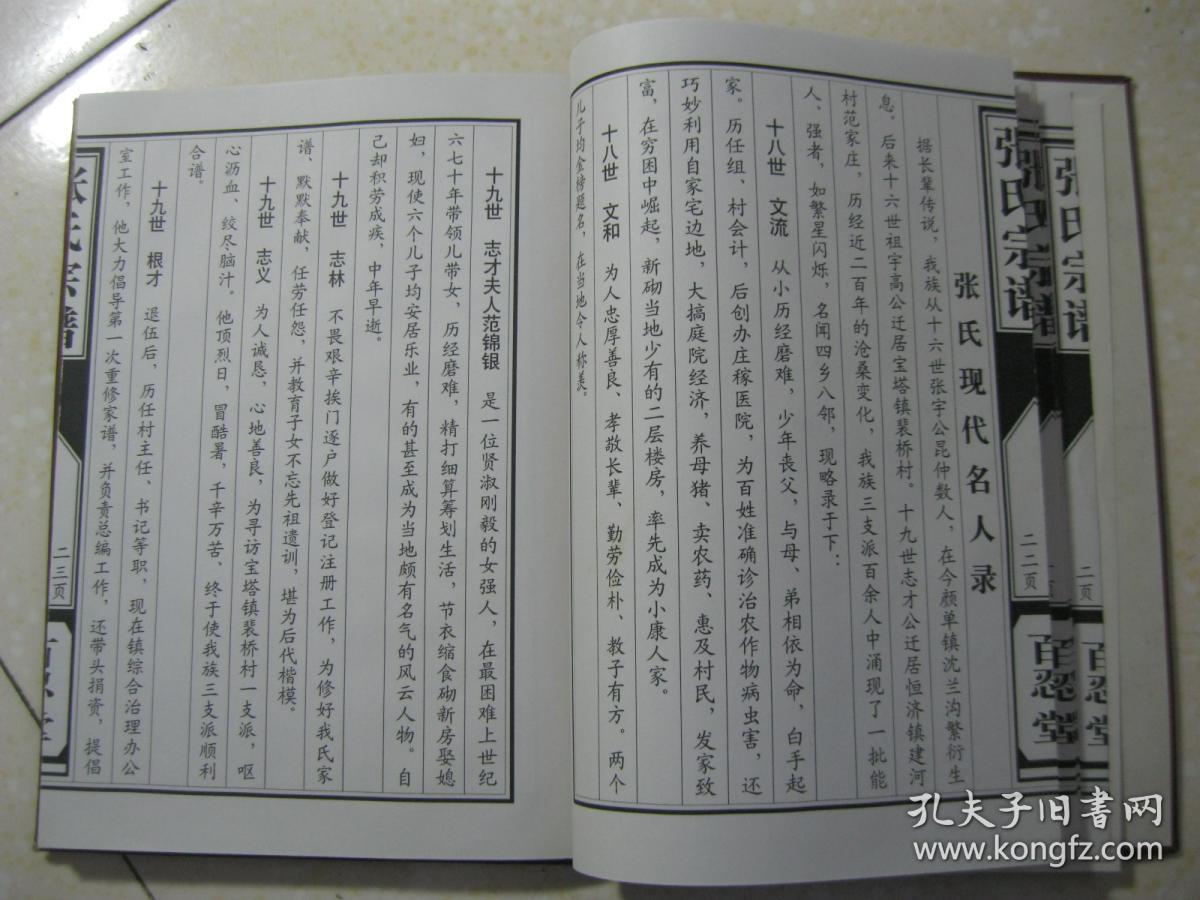 张氏宗谱
二二页
百忍堂
张氏现代名人录
据长辈传说，我族从十六世张宇公昆仲数人，在今颜单镇沈兰沟繁衍生
息。后来十六世祖宇高公迁居宝塔镇裴桥村。十九世志才公迁居恒济镇建河
村范家庄，历经近二百年的沧桑变化，我族三支派百余人中涌现了一批能
人、强者，如繁星闪烁，名闻四乡八邻，现略录于下：
十八世 文流 从小历经磨难，少年丧父，与母、弟相依为命，白手起
家。历任组、村会计，后创办庄稼医院，为百姓准确诊治农作物病虫害，还
巧妙利用自家宅边地，大搞庭院经济，养母猪、卖农药、惠及村民，发家致
富，在穷困中崛起，新砌当地少有的二层楼房，率先成为小康人家。
十八世 文和 为人忠厚善良、孝敬长辈、勤劳俭朴、教子有方。两个
儿子均金榜题名，在当地令人称羡。
十九世 志才夫人范锦银 是一位贤淑刚毅的女强人，在最困难上世纪
六七十年带领儿带女，历经磨难，精打细算筹划生活，节衣缩食砌新房娶媳
妇，现使六个儿子均安居乐业，有的甚至成为当地颇有名气的风云人物。自
己却积劳成疾，中年早逝。
十九世 志林 不畏艰辛挨门逐户做好登记注册工作，为修好我氏家
谱、默默奉献、任劳任怨，并教育子女不忘先祖遗训，堪为后代楷模。
十九世 志义 为人诚恳，心地善良，为寻访宝塔镇裴桥村一支派，呕
心沥血、绞尽脑汁。他顶烈日，冒酷暑，千辛万苦、终于使我族三支派顺利
合谱。
十九世 根才 退伍后，历任村主任、书记等职，现在镇综合治理办公
室工作，他大力倡导第一次重修家谱，并负责总编工作，还带头捐资，提倡
张氏宗谱
二三页
张氏宗谱
二页
百忍堂
孔夫子旧书网
www.kongfz.com